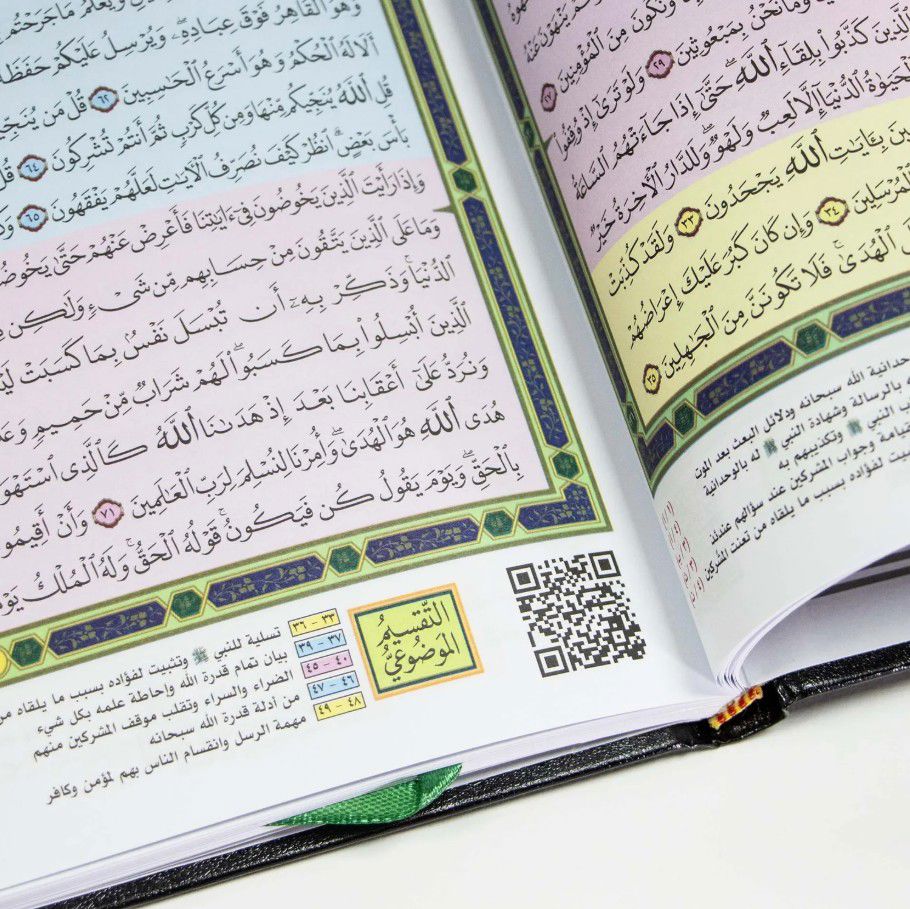 يَنْهَوْنَ عَنْهُ
وَنَكُونَ مِنَ ٱلْمُؤْمِنِينَ ٢٧
وَمَا نَحْنُ بِمَبْعُوثِينَ ٢٩ وَلَوْ تَرَىٰٓ إِذْ وُقِفُوا۟
ٱلَّذِينَ كَذَّبُوا۟ بِلِقَآءِ ٱللَّهِ حَتَّىٰٓ إِذَا جَآءَتْهُمُ ٱلسَّاعَةُ
ٱلْحَيَوٰةُ ٱلدُّنْيَآ إِلَّا لَعِبٌ وَلَهْوٌ وَلَلدَّارُ ٱلْـَٔاخِرَةُ خَيْرٌ
بِـَٔايَـٰتِ ٱللَّهِ يَجْحَدُونَ ٣٣ وَلَقَدْ كُذِّبَتْ
ٱلْمُرْسَلِينَ ٣٤ وَإِن كَانَ كَبُرَ عَلَيْكَ إِعْرَاضُهُمْ
ٱلْهُدَىٰ فَلَا تَكُونَنَّ مِنَ ٱلْجَـٰهِلِينَ ٣٥
الله سبحانه ودلائل البعث بعد الموت
بالرسالة وشهادة النبي ﷺ له بالوحدانية
النبي ﷺ وتكذيبهم به
وجواب المشركين عند سؤالهم عندئذ
لفؤاده بسبب ما يلقاه من تعنت المشركين
وَيَعْلَمُ مَا جَرَحْتُم
وَهُوَ ٱلْقَاهِرُ فَوْقَ عِبَادِهِۦ وَيُرْسِلُ عَلَيْكُمْ حَفَظَةً
أَلَا لَهُ ٱلْحُكْمُ وَهُوَ أَسْرَعُ ٱلْحَـٰسِبِينَ ٦٢ قُلْ مَن يُنَجِّيكُم
قُلِ ٱللَّهُ يُنَجِّيكُم مِّنْهَا وَمِن كُلِّ كَرْبٍ ثُمَّ أَنتُمْ تُشْرِكُونَ ٦٤ قُلْ
بَأْسَ بَعْضٍ ٱنظُرْ كَيْفَ نُصَرِّفُ ٱلْـَٔايَـٰتِ لَعَلَّهُمْ يَفْقَهُونَ ٦٥
وَإِذَا رَأَيْتَ ٱلَّذِينَ يَخُوضُونَ فِىٓ ءَايَـٰتِنَا فَأَعْرِضْ عَنْهُمْ حَتَّىٰ يَخُوضُوا۟
وَمَا عَلَى ٱلَّذِينَ يَتَّقُونَ مِنْ حِسَابِهِم مِّن شَىْءٍ وَلَـٰكِن
ٱلدُّنْيَا وَذَكِّرْ بِهِۦٓ أَن تُبْسَلَ نَفْسٌۢ بِمَا كَسَبَتْ لَيْسَ
ٱلَّذِينَ أُبْسِلُوا۟ بِمَا كَسَبُوا۟ لَهُمْ شَرَابٌ مِّنْ حَمِيمٍ وَعَذَابٌ
وَنُرَدُّ عَلَىٰٓ أَعْقَابِنَا بَعْدَ إِذْ هَدَىٰنَا ٱللَّهُ كَٱلَّذِى ٱسْتَهْوَتْهُ
هُدَى ٱللَّهِ هُوَ ٱلْهُدَىٰ وَأُمِرْنَا لِنُسْلِمَ لِرَبِّ ٱلْعَـٰلَمِينَ ٧١ وَأَنْ أَقِيمُوا۟
بِٱلْحَقِّ وَيَوْمَ يَقُولُ كُن فَيَكُونُ قَوْلُهُ ٱلْحَقُّ وَلَهُ ٱلْمُلْكُ يَوْمَ
التَّقسِيمُ
المَوضُوعِيُّ
٣٣ - ٣٦ تسلية للنبي ﷺ وتثبيت لفؤاده بسبب ما يلقاه من
٣٧ - ٣٩ بيان تمام قدرة الله وإحاطة علمه بكل شيء
٤٠ - ٤٥ الضراء والسراء وتقلب موقف المشركين منهم
٤٦ - ٤٧ من أدلة قدرة الله سبحانه
٤٨ - ٤٩ مهمة الرسل وانقسام الناس بهم لمؤمن وكافر